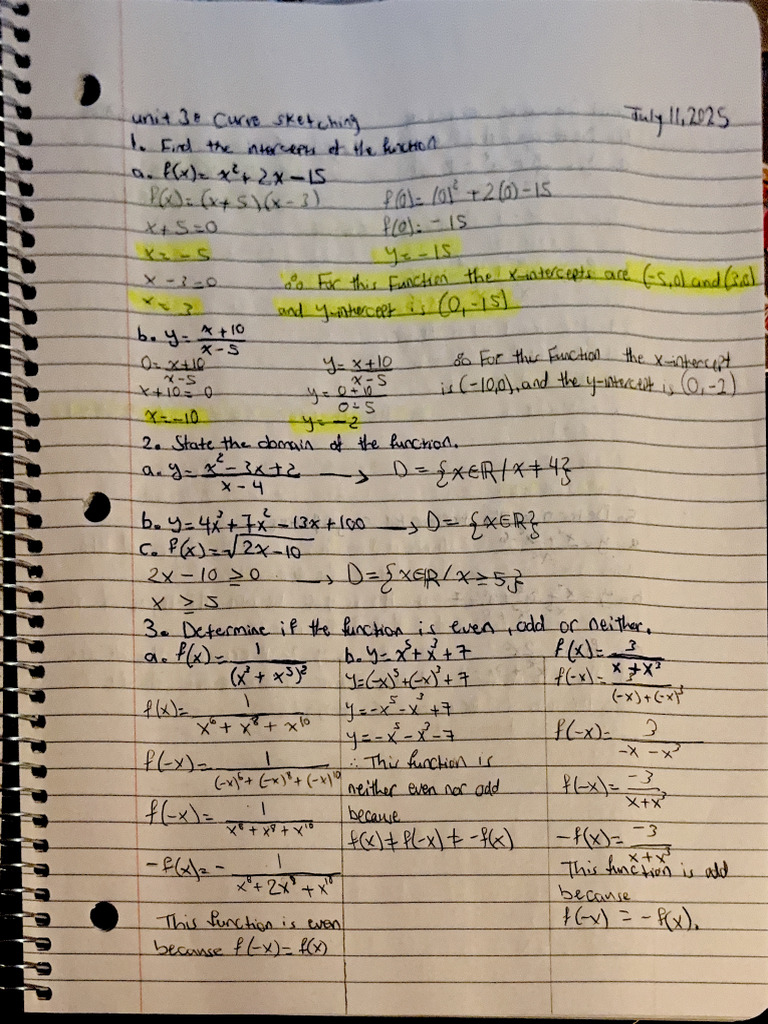 unit 3: Curve sketching July 11, 2025
1. Find the intercepts of the function
a. f(x) = x² + 2x - 15
f(x) = (x+5)(x-3) f(0) = (0)² + 2(0) - 15
x + 5 = 0 f(0) = -15
x = -5 y = -15
x - 3 = 0 ∴ For this Function the x-intercepts are (-5,0) and (3,0)
x = 3 and y-intercept is (0, -15)
b. y = (x+10)/(x-5)
0 = (x+10)/(x-5) y = (x+10)/(x-5) ∴ For this Function the x-intercept
x + 10 = 0 y = (0+10)/(0-5) is (-10,0), and the y-intercept is (0, -2)
x = -10 y = -2
2. State the domain of the function.
a. y = (x² - 3x + 2)/(x - 4) → D = {x∈R / x ≠ 4}
b. y = 4x³ + 7x² - 13x + 100 → D = {x∈R}
c. f(x) = √(2x - 10)
2x - 10 ≥ 0 → D = {x∈R / x ≥ 5}
x ≥ 5
3. Determine if the function is even, odd or neither.
a. f(x) = 1/(x³ + x⁵)²
f(x) = 1/(x⁶ + x⁸ + x¹⁰)
f(-x) = 1/((-x)⁶ + (-x)⁸ + (-x)¹⁰)
f(-x) = 1/(x⁶ + x⁸ + x¹⁰)
-f(x) = - 1/(x⁶ + 2x⁸ + x¹⁰)
This function is even
because f(-x) = f(x)
b. y = x⁵ + x³ + 7
y = (-x)⁵ + (-x)³ + 7
y = -x⁵ - x³ + 7
y = -x⁵ - x³ - 7
∴ This function is
neither even nor odd
because
f(x) ≠ f(-x) ≠ -f(x)
f(x) = 3/(x + x³)
f(-x) = 3/((-x) + (-x)³)
f(-x) = 3/(-x - x³)
f(-x) = -3/(x + x³)
-f(x) = -3/(x + x³)
This function is odd
because
f(-x) = -f(x).